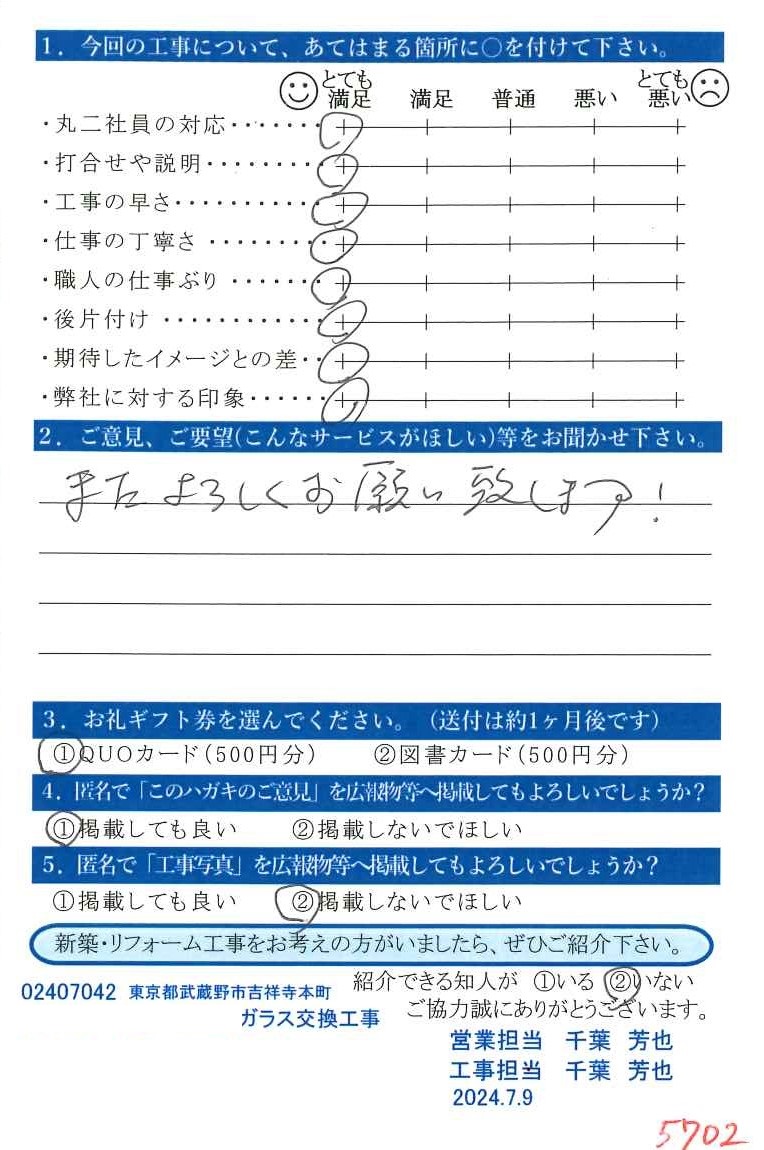 1．今回の工事について、あてはまる箇所に○を付けて下さい。
とても満足 満足 普通 悪い とても悪い
・丸二社員の対応‥‥‥‥
・打合せや説明‥‥‥‥‥
・工事の早さ‥‥‥‥‥‥
・仕事の丁寧さ ‥‥‥‥
・職人の仕事ぶり ‥‥‥
・後片付け ‥‥‥‥‥‥
・期待したイメージとの差‥
・弊社に対する印象‥‥‥
2．ご意見、ご要望(こんなサービスがほしい)等をお聞かせ下さい。
またよろしくお願い致します！
3．お礼ギフト券を選んでください。（送付は約1ヶ月後です）
①QUOカード（500円分） ②図書カード（500円分）
4．匿名で「このハガキのご意見」を広報物等へ掲載してもよろしいでしょうか？
①掲載しても良い ②掲載しないでほしい
5．匿名で「工事写真」を広報物等へ掲載してもよろしいでしょうか？
①掲載しても良い ②掲載しないでほしい
新築・リフォーム工事をお考えの方がいましたら、ぜひご紹介下さい。
紹介できる知人が ①いる ②いない
02407042 東京都武蔵野市吉祥寺本町
ご協力誠にありがとうございます。
ガラス交換工事
営業担当 千葉 芳也
工事担当 千葉 芳也
2024.7.9
5702